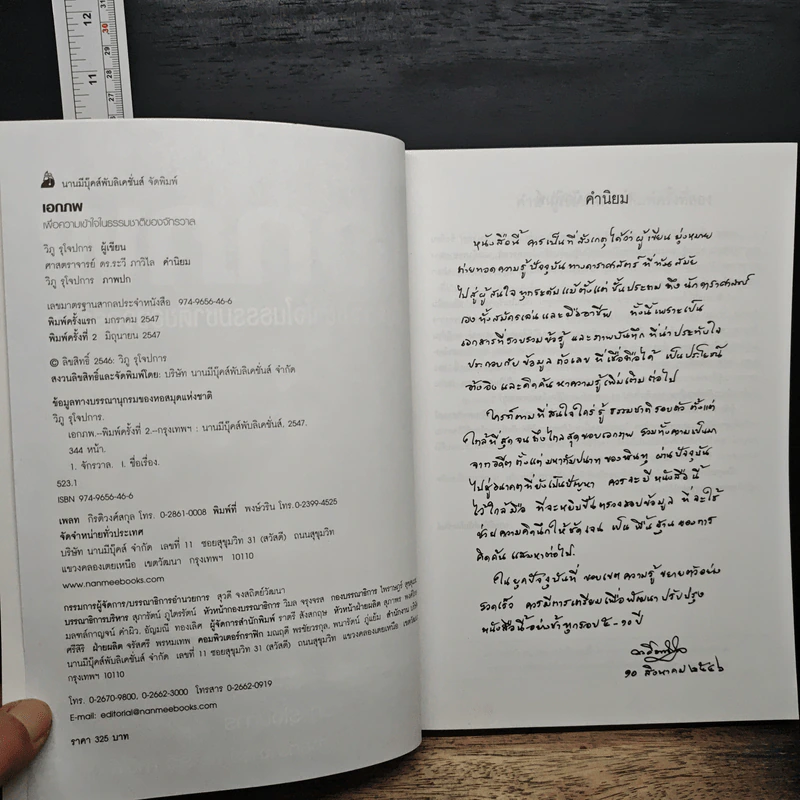 12
11
30
29
28
27
นานมีบุ๊คส์พับลิเคชั่นส์ จัดพิมพ์
เอกภพ
เพื่อความเข้าใจในธรรมชาติของจักรวาล
วิภู รุโจปการ ผู้เขียน
ศาสตราจารย์ ดร.ระวี ภาวิไล คำนิยม
วิภู รุโจปการ ภาพปก
เลขมาตรฐานสากลประจำหนังสือ 974-9656-46-6
พิมพ์ครั้งแรก มกราคม 2547
พิมพ์ครั้งที่ 2 มิถุนายน 2547
© ลิขสิทธิ์ 2546: วิภู รุโจปการ
สงวนลิขสิทธิ์และจัดพิมพ์โดย: บริษัท นานมีบุ๊คส์ จำกัด
ข้อมูลทางบรรณานุกรมของหอสมุดแห่งชาติ
วิภู รุโจปการ.
เอกภพ.--พิมพ์ครั้งที่ 2.--กรุงเทพฯ : นานมีบุ๊คส์พับลิเคชั่นส์, 2547.
344 หน้า.
1. จักรวาล. I. ชื่อเรื่อง.
523.1
ISBN 974-9656-46-6
เพลท กิรติวงศ์สกุล โทร. 0-2861-0008 พิมพ์ที่ พงษ์วริน โทร. 0-2399-4525
จัดจำหน่ายทั่วประเทศ
บริษัท นานมีบุ๊คส์ จำกัด เลขที่ 11 ซอยสุขุมวิท 31 (สวัสดี) ถนนสุขุมวิท
แขวงคลองเตยเหนือ เขตวัฒนา กรุงเทพฯ 10110
www.nanmeebooks.com
กรรมการผู้จัดการ/บรรณาธิการอำนวยการ สุวดี จงสถิตย์วัฒนา
บรรณาธิการบริหาร สุภารัตน์ ภูไตรรัตน์ หัวหน้ากองบรรณาธิการ วิมล จรุงจรส กองบรรณาธิการ ไพราษฎร์
มลฑลักาญจน์ คำผิว, อัญมณี ทองเลิศ ผู้จัดการสำนักพิมพ์ ราตรี สังสกฤษ หัวหน้าฝ่ายผลิต สุภาพร
ศรีสิริ ฝ่ายผลิต จรัสศรี พรหมเทพ คอมพิวเตอร์กราฟิก มณฤดี พรชัยวรกุล, พนารัตน์ ภู่แย้ม สำนักงาน บริษัท
นานมีบุ๊คส์พับลิเคชั่นส์ จำกัด เลขที่ 11 ซอยสุขุมวิท 31 (สวัสดี) ถนนสุขุมวิท แขวงคลองเตยเหนือ เขตวัฒนา
กรุงเทพฯ 10110
โทร. 0-2670-9800, 0-2662-3000 โทรสาร 0-2662-0919
E-mail: editorial@nanmeebooks.com
ราคา 325 บาท
คำนิยม
หนังสือนี้ ควรเป็นที่สังเกตได้ว่าผู้เขียนมุ่งหมาย
ถ่ายทอดความรู้ปัจจุบันทางดาราศาสตร์ที่ทันสมัย
ไปสู่ผู้สนใจทุกระดับ แม้ตั้งแต่ชั้นประถม ถึงนักดาราศาสตร์
เอง ทั้งสมัครเล่นและมืออาชีพ ทั้งนี้เพราะเป็น
เอกสารที่รวบรวมข้อรู้ และภาพบันทึกที่น่าประทับใจ
ประกอบกับข้อมูลตัวเลขที่เชื่อถือได้ เป็นประโยชน์
อ้างอิงและคิดค้นหาความรู้เพิ่มเติมต่อไป
ใครก็ตามที่สนใจใคร่รู้ธรรมชาติรอบตัว ตั้งแต่
ใกล้ที่สุดจนถึงไกลสุดขอบเอกภพ รวมทั้งความเป็นมา
จากอดีตตั้งแต่มหากัมปนาทของ ผ่านปัจจุบัน
ไปสู่อนาคตที่ยังเป็นปัญหา ควรจะมีหนังสือนี้
ไว้ใกล้มือ ที่จะหยิบขึ้นตรวจสอบข้อมูลที่จะใช้
ช่วยความคิดนึกให้ชัดเจน เป็นพื้นฐานของการ
คิดค้นแสวงหาต่อไป.
ในยุคปัจจุบันที่ขอบเขตความรู้ขยายตัวอย่าง
รวดเร็ว ควรมีการเตรียมเพื่อพัฒนาปรับปรุง
หนังสือนี้อย่างช้าทุกรอบ ๕-๑๐ ปี
๑๐ สิงหาคม ๒๕๔๖